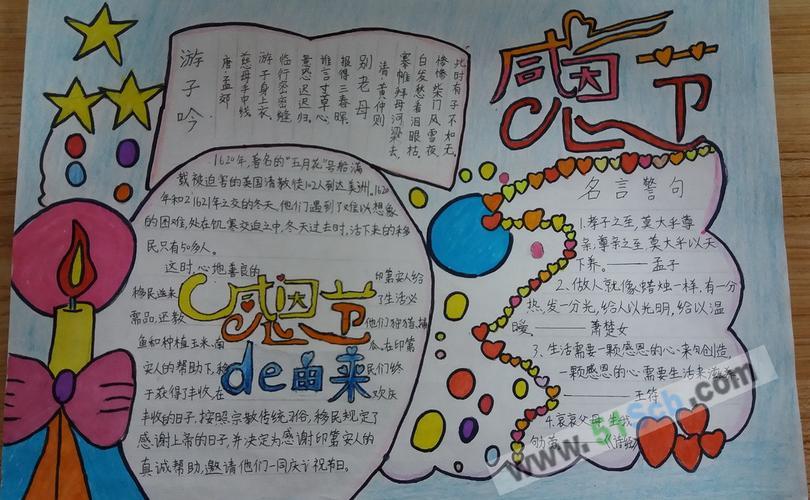 感恩节
游子吟
唐·孟郊
慈母手中线
游子身上衣
临行密密缝
意恐迟迟归。
谁言寸草心
报得三春晖
别老母
清·黄仲则
搴帷拜母河梁去,
白发愁看泪眼枯
惨惨柴门风雪夜
此时有子不如无。
1620年,著名的“五月花”号船满
载被迫害的英国清教徒102人到达美洲。1620
年和1621年之交的冬天,他们遇到了难以想象
的困难,处在饥寒交迫之中,冬天过去时,活下来的移
民只有50多人。
这时,心地善良的 印第安人给
移民送来 了生活必
需品,还教 他们狩猎、捕
鱼和种植玉米、南 瓜,在印第
安人的帮助下,移 民们终
于获得了丰收,在 欢庆
丰收的日子,按照宗教传统习俗,移民规定了
感谢上帝的日子,并决定为感谢印第安人的
真诚帮助,邀请他们一同庆祝节日。
感恩节
de由来
名言警句
1.孝子之至,莫大乎尊
亲;尊亲之至,莫大乎以天
下养。——孟子
2、做人就像蜡烛一样,有一分
热,发一分光,给人以光明,给以温
暖。——萧楚女
3、生活需要一颗感恩的心来创造,
一颗感恩的心需要生活来滋养
——王符
4.哀哀父母,生我
劬劳。——《诗经》